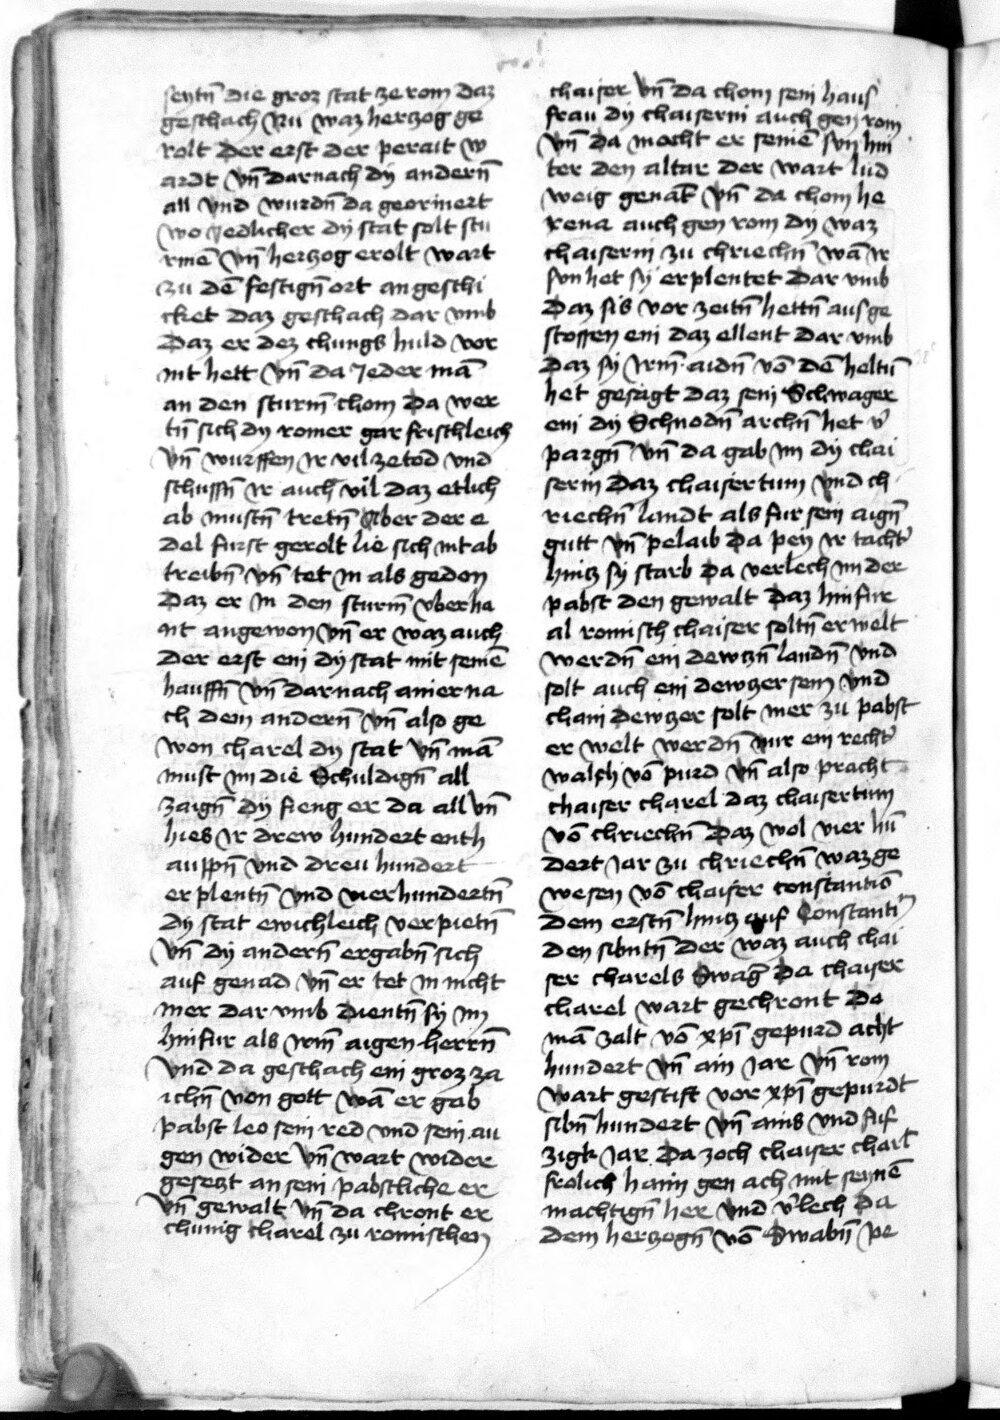 seytn̄ die groz stat ze rom daz
geschach Nu waz herczog ge
rolt der erst der perait w
ardt vn̄ darnach dy andern̄
all vnd wurdn̄ da georinert
wo yedlicher dy stat solt stu
rmē vn̄ herczog erolt wart
zu dē festign̄ ort angeschi
cket daz geschach dar vmb
Daz er dez chungs huld vor
nit hett vn̄ da Jeder mā
an den sturm̄ chom Da wer
tn̄ sich dy romer gar frischleich
vn̄ wurffen Jr vil ze tod vnd
schussn̄ Jr auch vil daz etlich
ab mustn̄ tretn̄ Aber der e
del furst gerolt lie sich nit ab
treibn̄ vn̄ tet in als gedon
Daz er in den sturm̄ vberha
nt angewon vn̄ er waz auch
der erst eni dy stat mit seinē
hauffn̄ vn̄ darnach anier na
ch dem andern̄ vn̄ also ge
won charel dy stat vn̄ mā
must im die Schuldign̄ all
zaign̄ dy fieng er da all vn̄
hies Jr drew hundert enth
auppn̄ vnd dreu hundert
erplentn̄ vnd vier hundertn̄
dy stat ewichleich verpietn̄
vn̄ dy andern̄ ergabn̄ sich
auf genad vn̄ er tet in nicht
mer dar vmb dientn̄ sy im
hinfur als irm̄ aigen herrn̄
vnd da geschach eni groz za
ichn̄ von gott wā er gab
pabst leo seni red vnd seni au
gen wider vn̄ wart wider
gesetzt an seni pabstliche er
vn̄ gewalt vn̄ da chront er
chunig charel zu romischen
chaiser vn̄ da chom seni haus
frau dy chaiserni auch gen rom
vn̄ da mocht er seinē sun hin
ter den altar der wart lud
weig genāt vn̄ da chom he
rena auch gen rom dy waz
chaiserni zu chriechn̄ wā Jr
sun het sy erplentet dar vmb
Daz sis vor zeitn̄ hettn̄ aus ge
stossen eni daz ellent dar vmb
daz sy irm̄ aidn̄ vō dē heltū
het gesagt daz seni Schwager
eni dy Schnodn̄ archn̄ het v̄
pargn̄ vn̄ da gab im dy chai
serin daz chaisertum vnd ch
riechn̄ landt als fur seni aign̄
gutt vn̄ pelaib da pey Jr tacht̄
hintz sy starb da verlech im der
pabst den gewalt daz hinfur
al romisch chaiser soltn̄ erwelt
werdn̄ eni dewczn̄ landn̄ vnd
solt auch eni dewczer sein vnd
chani dewczer solt mer zu pabst
erwelt werdn̄ nur eni recht̄
walch vō purd vn̄ also pracht
chaiser charel daz chaisertum
vō chriechn̄ daz wol vier hū
dert Jar zu chriechn̄ waz ge
wesen vō chaiser constantio
dem erstn̄ hintz auf Constanti
den sibntn̄ der waz auch chai
ser charels Swaḡ da chaiser
charel wart gechront do
mā zalt vō xp̄i gepurd acht
hundert vn̄ ain Jar vn̄ rom
wart gestift vor xp̄i gepurdt
sibn̄ hundert vn̄ ains vnd fuf
zigk Jar Da zoch chaiser charl
frolich haim gen ach mit seynē
machtign̄ her vnd v̄lech da
dem herczogn̄ vō Swabn̄ pe